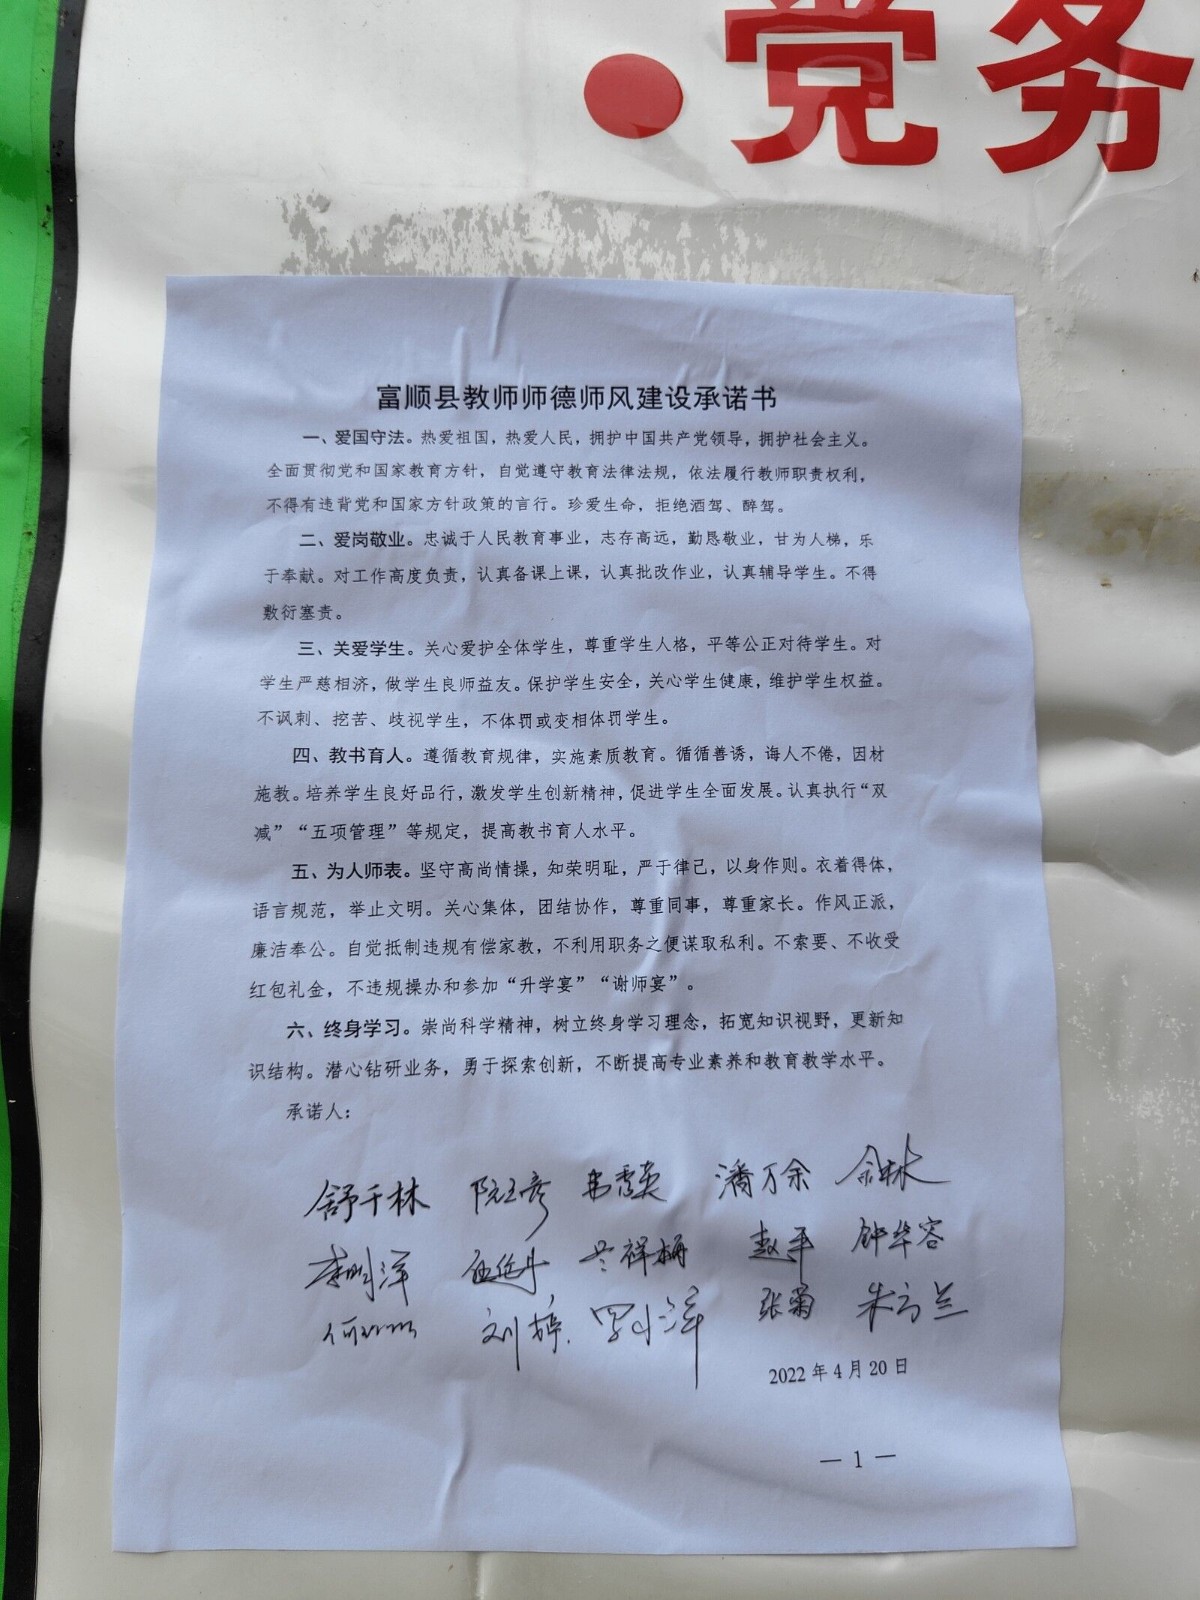 ·党务
富顺县教师师德师风建设承诺书
一、爱国守法。热爱祖国，热爱人民，拥护中国共产党领导，拥护社会主义。
全面贯彻党和国家教育方针，自觉遵守教育法律法规，依法履行教师职责权利，
不得有违背党和国家方针政策的言行。珍爱生命，拒绝酒驾、醉驾。
二、爱岗敬业。忠诚于人民教育事业，志存高远，勤恳敬业，甘为人梯，乐
于奉献。对工作高度负责，认真备课上课，认真批改作业，认真辅导学生。不得
敷衍塞责。
三、关爱学生。关心爱护全体学生，尊重学生人格，平等公正对待学生。对
学生严慈相济，做学生良师益友。保护学生安全，关心学生健康，维护学生权益。
不讽刺、挖苦、歧视学生，不体罚或变相体罚学生。
四、教书育人。遵循教育规律，实施素质教育。循循善诱，诲人不倦，因材
施教。培养学生良好品行，激发学生创新精神，促进学生全面发展。认真执行“双
减”“五项管理”等规定，提高教书育人水平。
五、为人师表。坚守高尚情操，知荣明耻，严于律己，以身作则。衣着得体，
语言规范，举止文明。关心集体，团结协作，尊重同事，尊重家长。作风正派，
廉洁奉公。自觉抵制违规有偿家教，不利用职务之便谋取私利。不索要、不收受
红包礼金，不违规操办和参加“升学宴”“谢师宴”。
六、终身学习。崇尚科学精神，树立终身学习理念，拓宽知识视野，更新知
识结构。潜心钻研业务，勇于探索创新，不断提高专业素养和教育教学水平。
承诺人：
舒千林 阮玉彦 潘万余 余林
李明洋 赵平 钟华容
刘婷 罗小洋 张菊 朱方兰
2022年4月20日
— 1 —